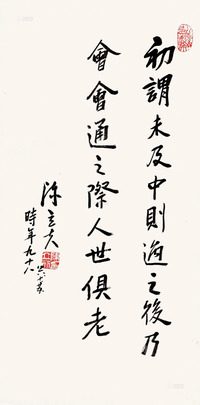 初謂未及中則適之後乃
會會通之際人世俱老
陳立夫
時年九十八